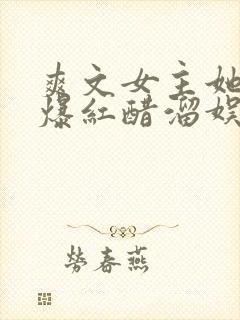 爽文女主她
爆红醋溜娱
劳春燕